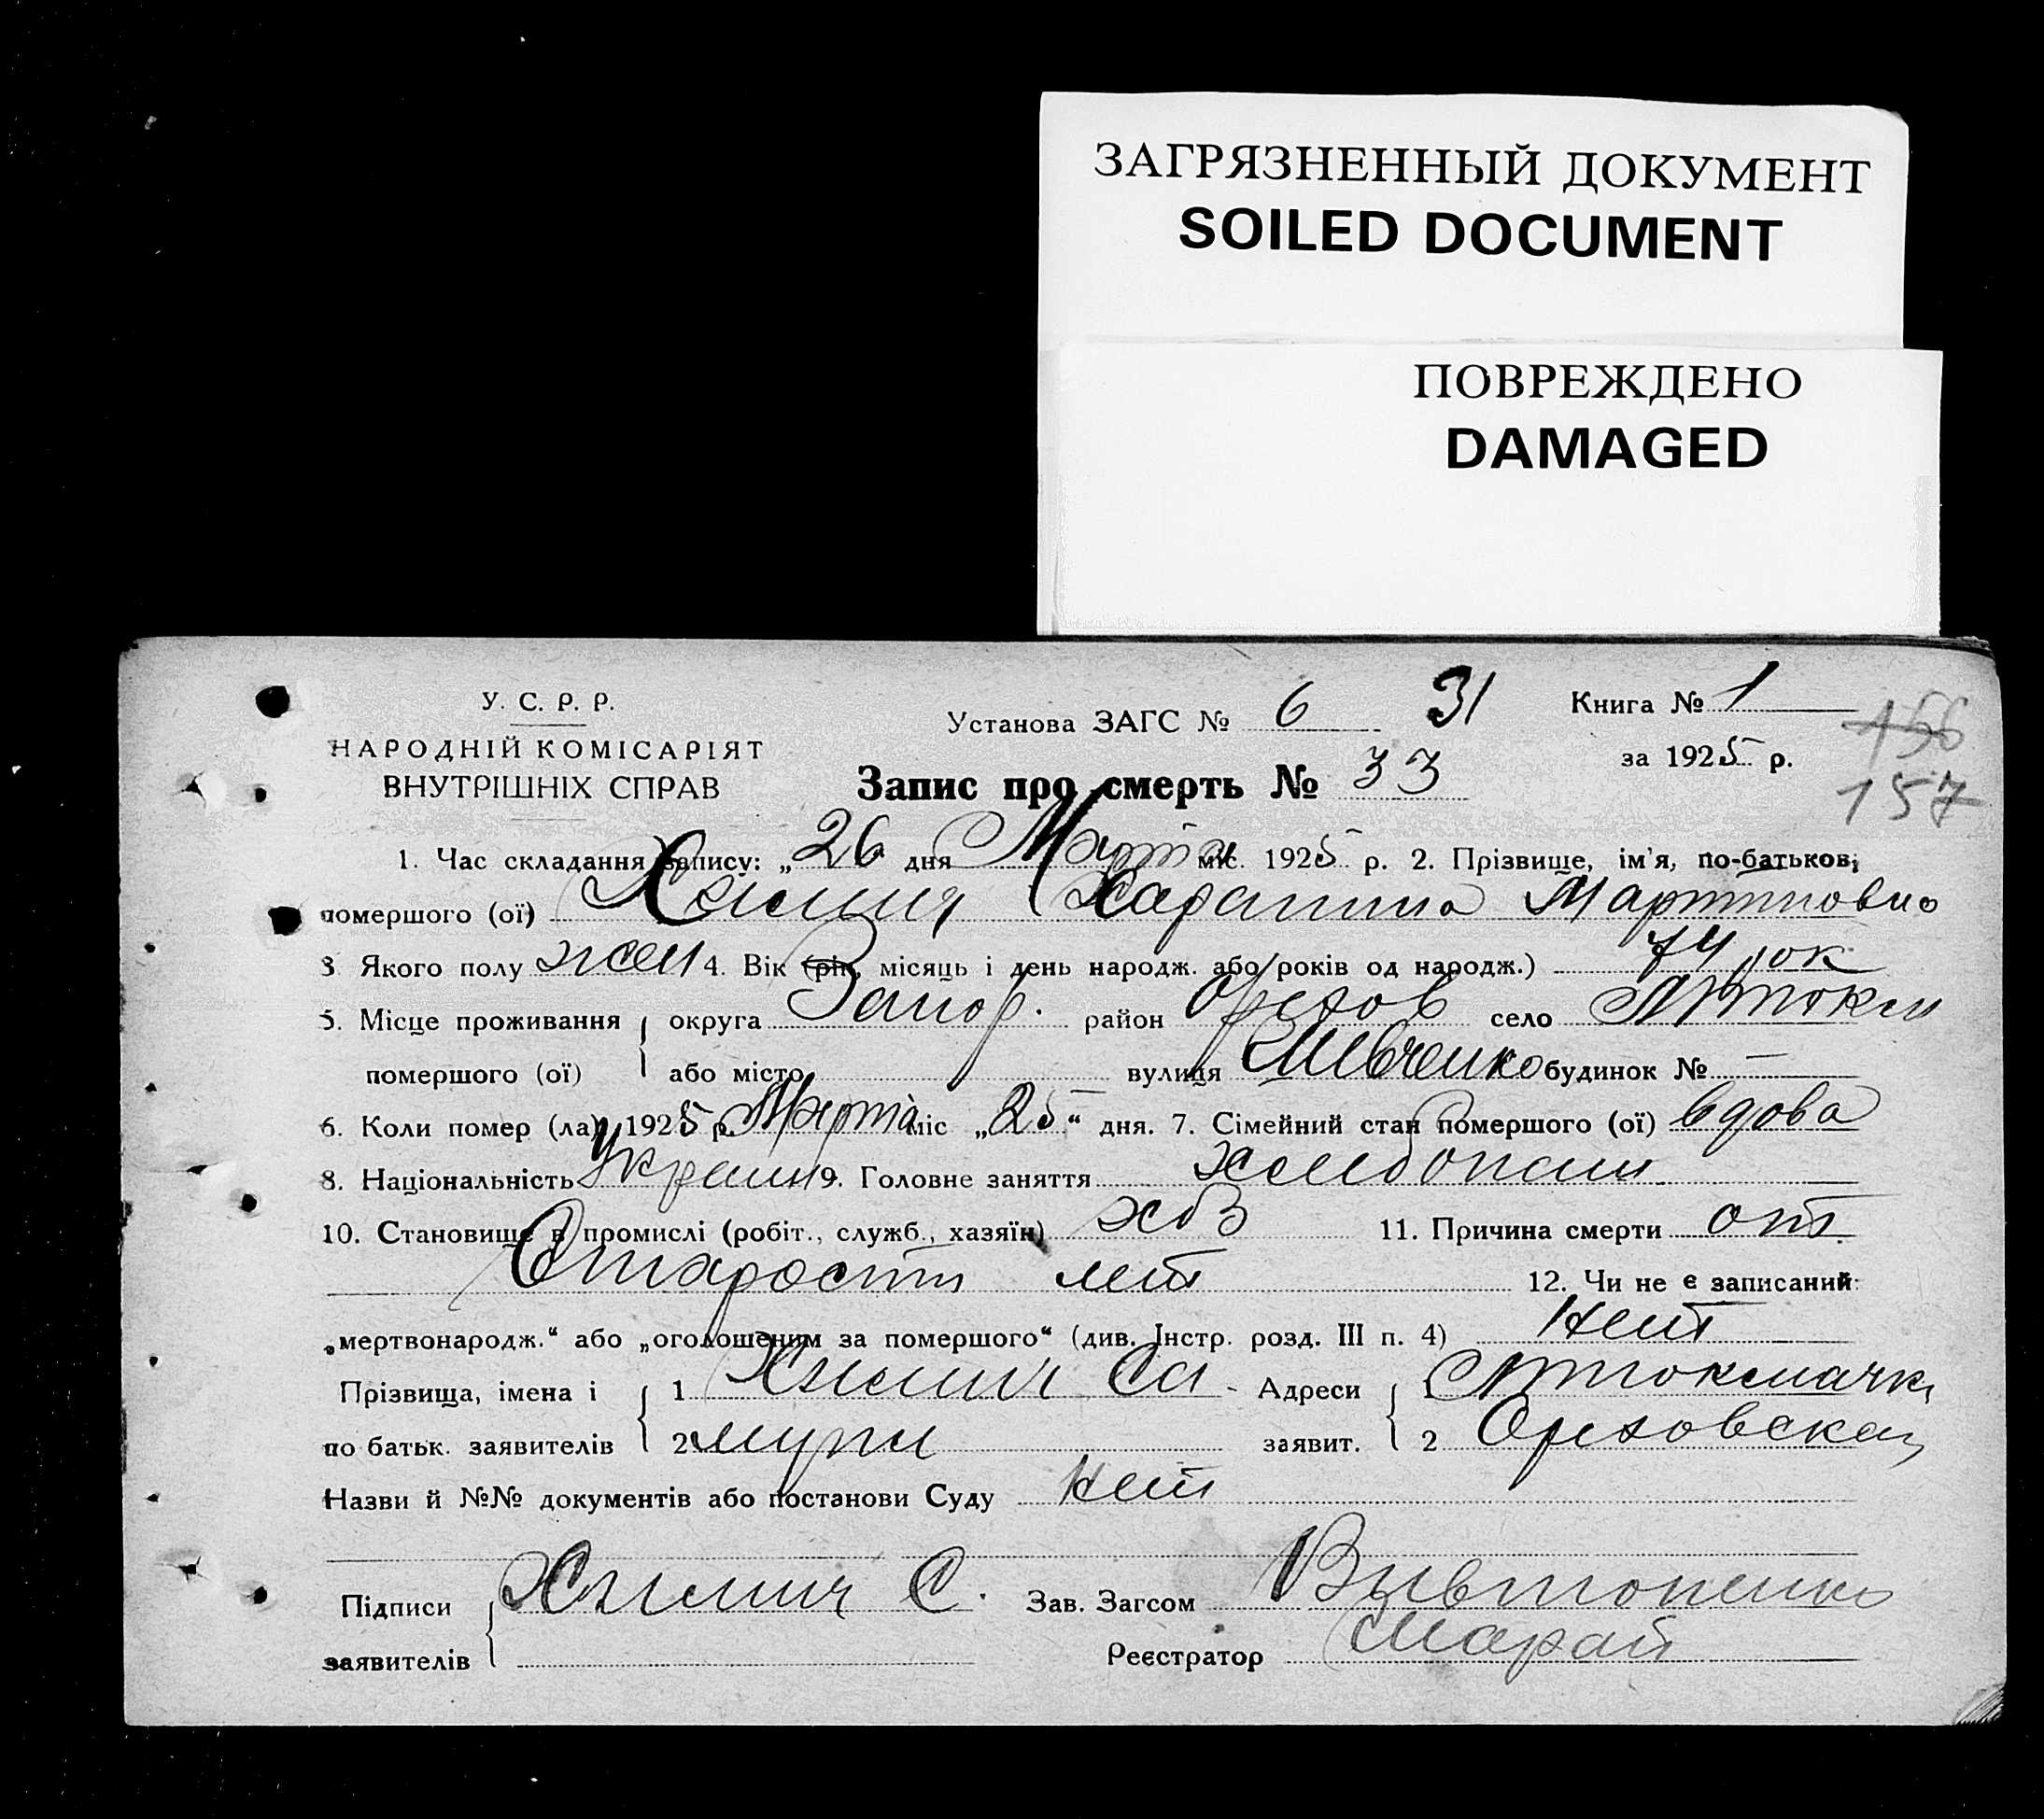 ЗАГРЯЗНЕННЫЙ ДОКУМЕНТ
SOILED DOCUMENT
ПОВРЕЖДЕНО
DAMAGED
У. С. Р. Р.
НАРОДНІЙ КОМІСАРІЯТ
ВНУТРІШНІХ СПРАВ
Установа ЗАГС № 6 31
Книга № 1
за 1925 р.
156
157
Запис про смерть № 33
1. Час складання запису: „26 дня Марта міс. 1925 р. 2. Прізвище, ім'я, по-батькові
помершого (ої) Мартиновна
3 Якого полу жен 4. Вік (рік, місяць і день народж. або років од народж.) 74 рок
5. Місце проживання округа Запор. район Орехов село
помершого (ої) або місто вулиця Шевченко будинок № —
6. Коли помер (ла) 1925 р. Марта міс „25“ дня. 7. Сімейний стан помершого (ої) вдова
8. Національність Украин 9. Головне заняття хлебопаш
10. Становище в промислі (робіт., служб., хазяїн) хбз 11. Причина смерти от
Старости лет 12. Чи не є записаний:
„мертвонародж.“ або „оголошеним за помершого“ (див. Інстр. розд. III п. 4) Нет
Прізвища, імена і 1 Адреси 1
по батьк. заявителів 2 заявит. 2 Ореховская
Назви й №№ документів або постанови Суду Нет
Підписи С. Зав. Загсом
заявителів Реєстратор